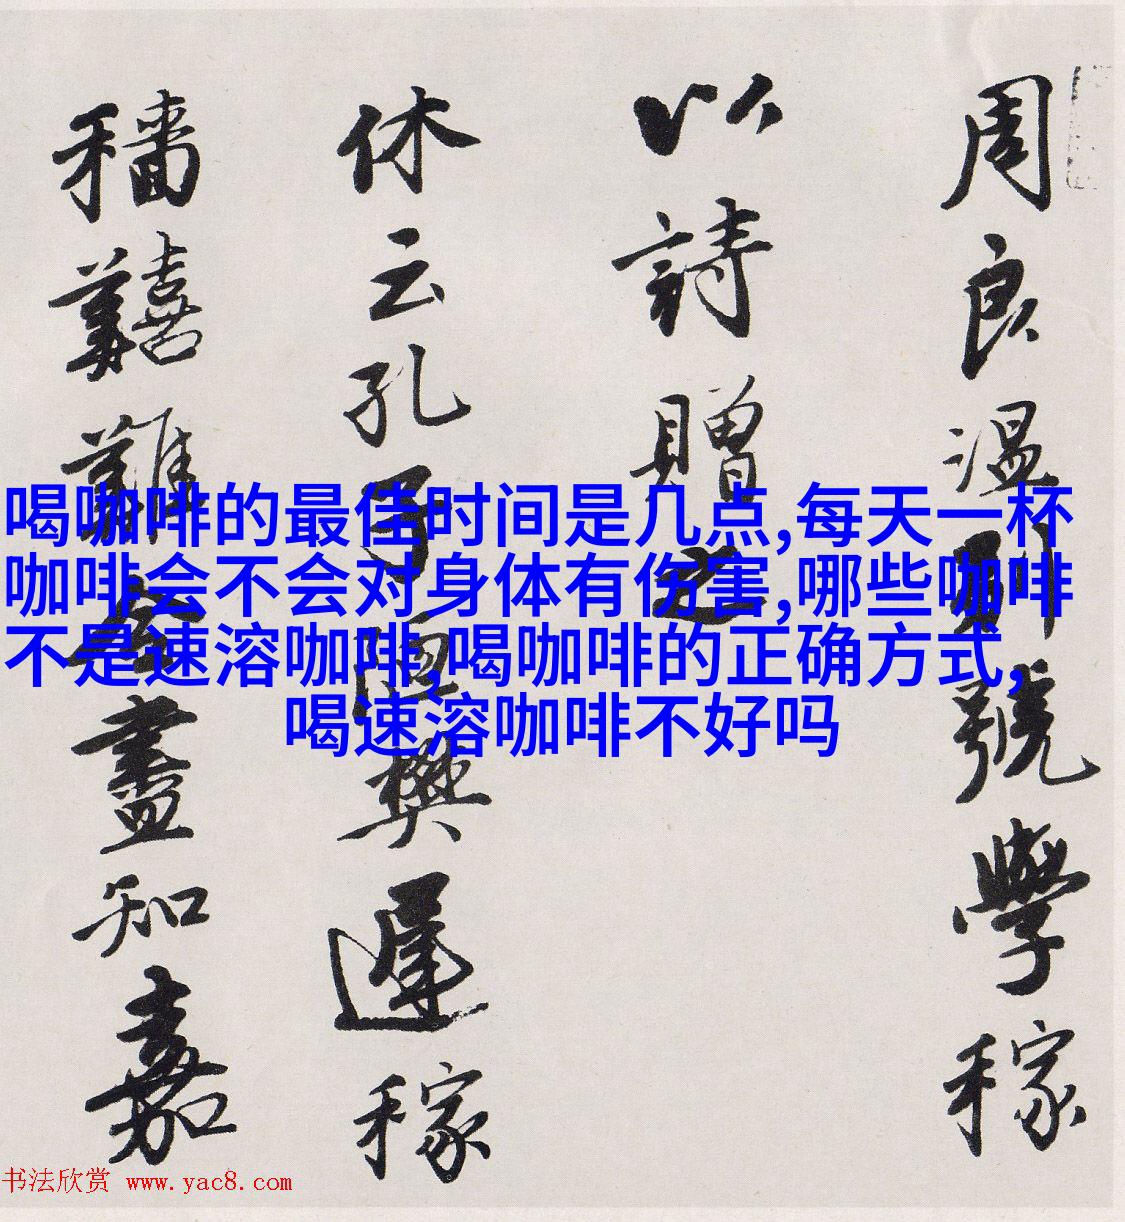 喝咖啡的最佳时间是几点,每天一杯
咖啡会不会对身体有伤害,哪些咖啡
不是速溶咖啡,喝咖啡的正确方式,
喝速溶咖啡不好吗
周良温別號學稼
以詩贈之
休云孔子陋樊遲稼
穡囏難盡知嘉
书法欣赏 www.yac8.com